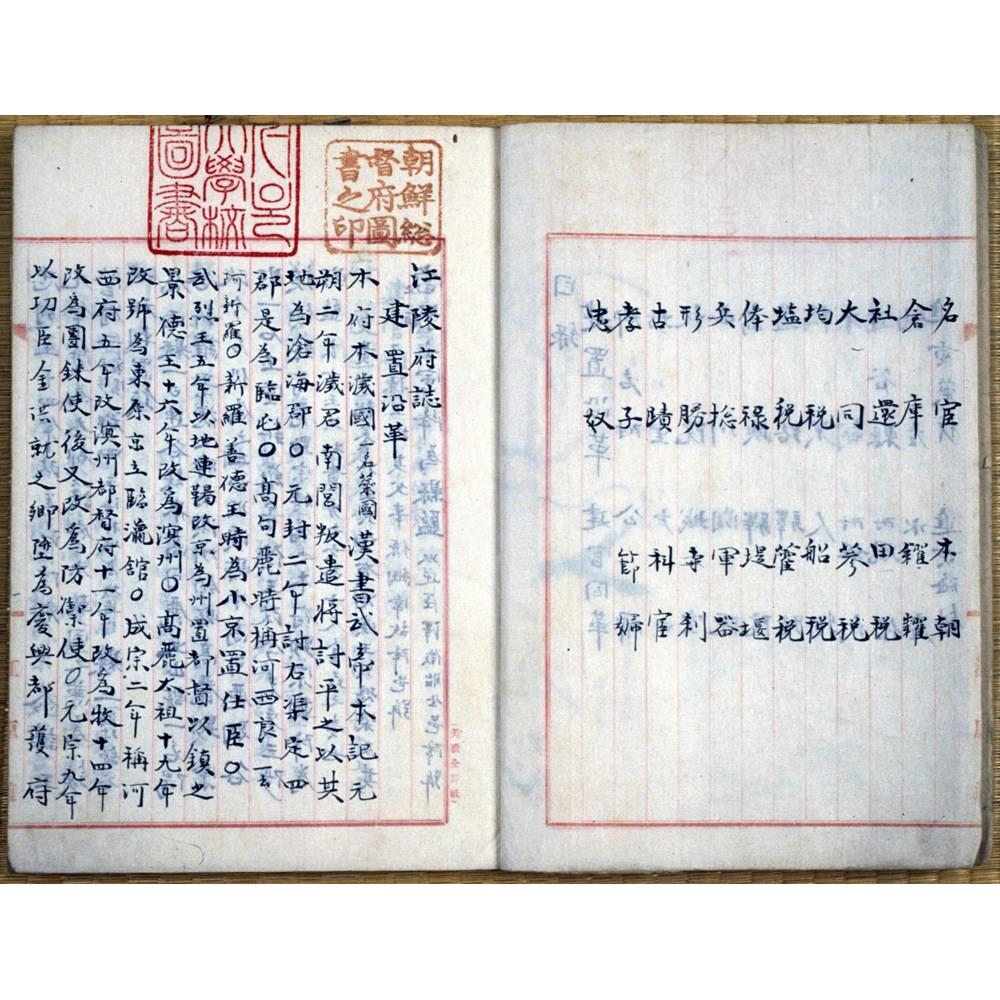 名宦 本朝
倉庫 糴糶
社還 田税
大同 蔘税
均税 船税
塩税 藿税
俸禄 堤堰
兵捴 軍器
形勝 寺利
古蹟 科宦
孝子 節婦
忠奴
朝鮮総
督府圖
書之印
學校
圖書
江陵府誌
建置沿革
本府本濊國一名蘂國漢書武帝本記元
朔二年濊君南閭叛遣將討平之以其
地為滄海郡〇元封二年討右渠定四
郡是為臨屯〇高句麗時稱河西良一云
新羅〇新羅善德王時為小京置仕臣〇
武烈王五年以地連鞨改京為州置都督以鎮之
景德王十六年改為溟州〇高麗太祖十九年
改號為東原京立臨瀛舘〇成宗二年稱河
西府五年改溟州都督府十一年改為牧十四年
改為團鍊使後又改為防禦使〇元宗九年
以功臣金洪就之鄉陞為慶興都護府